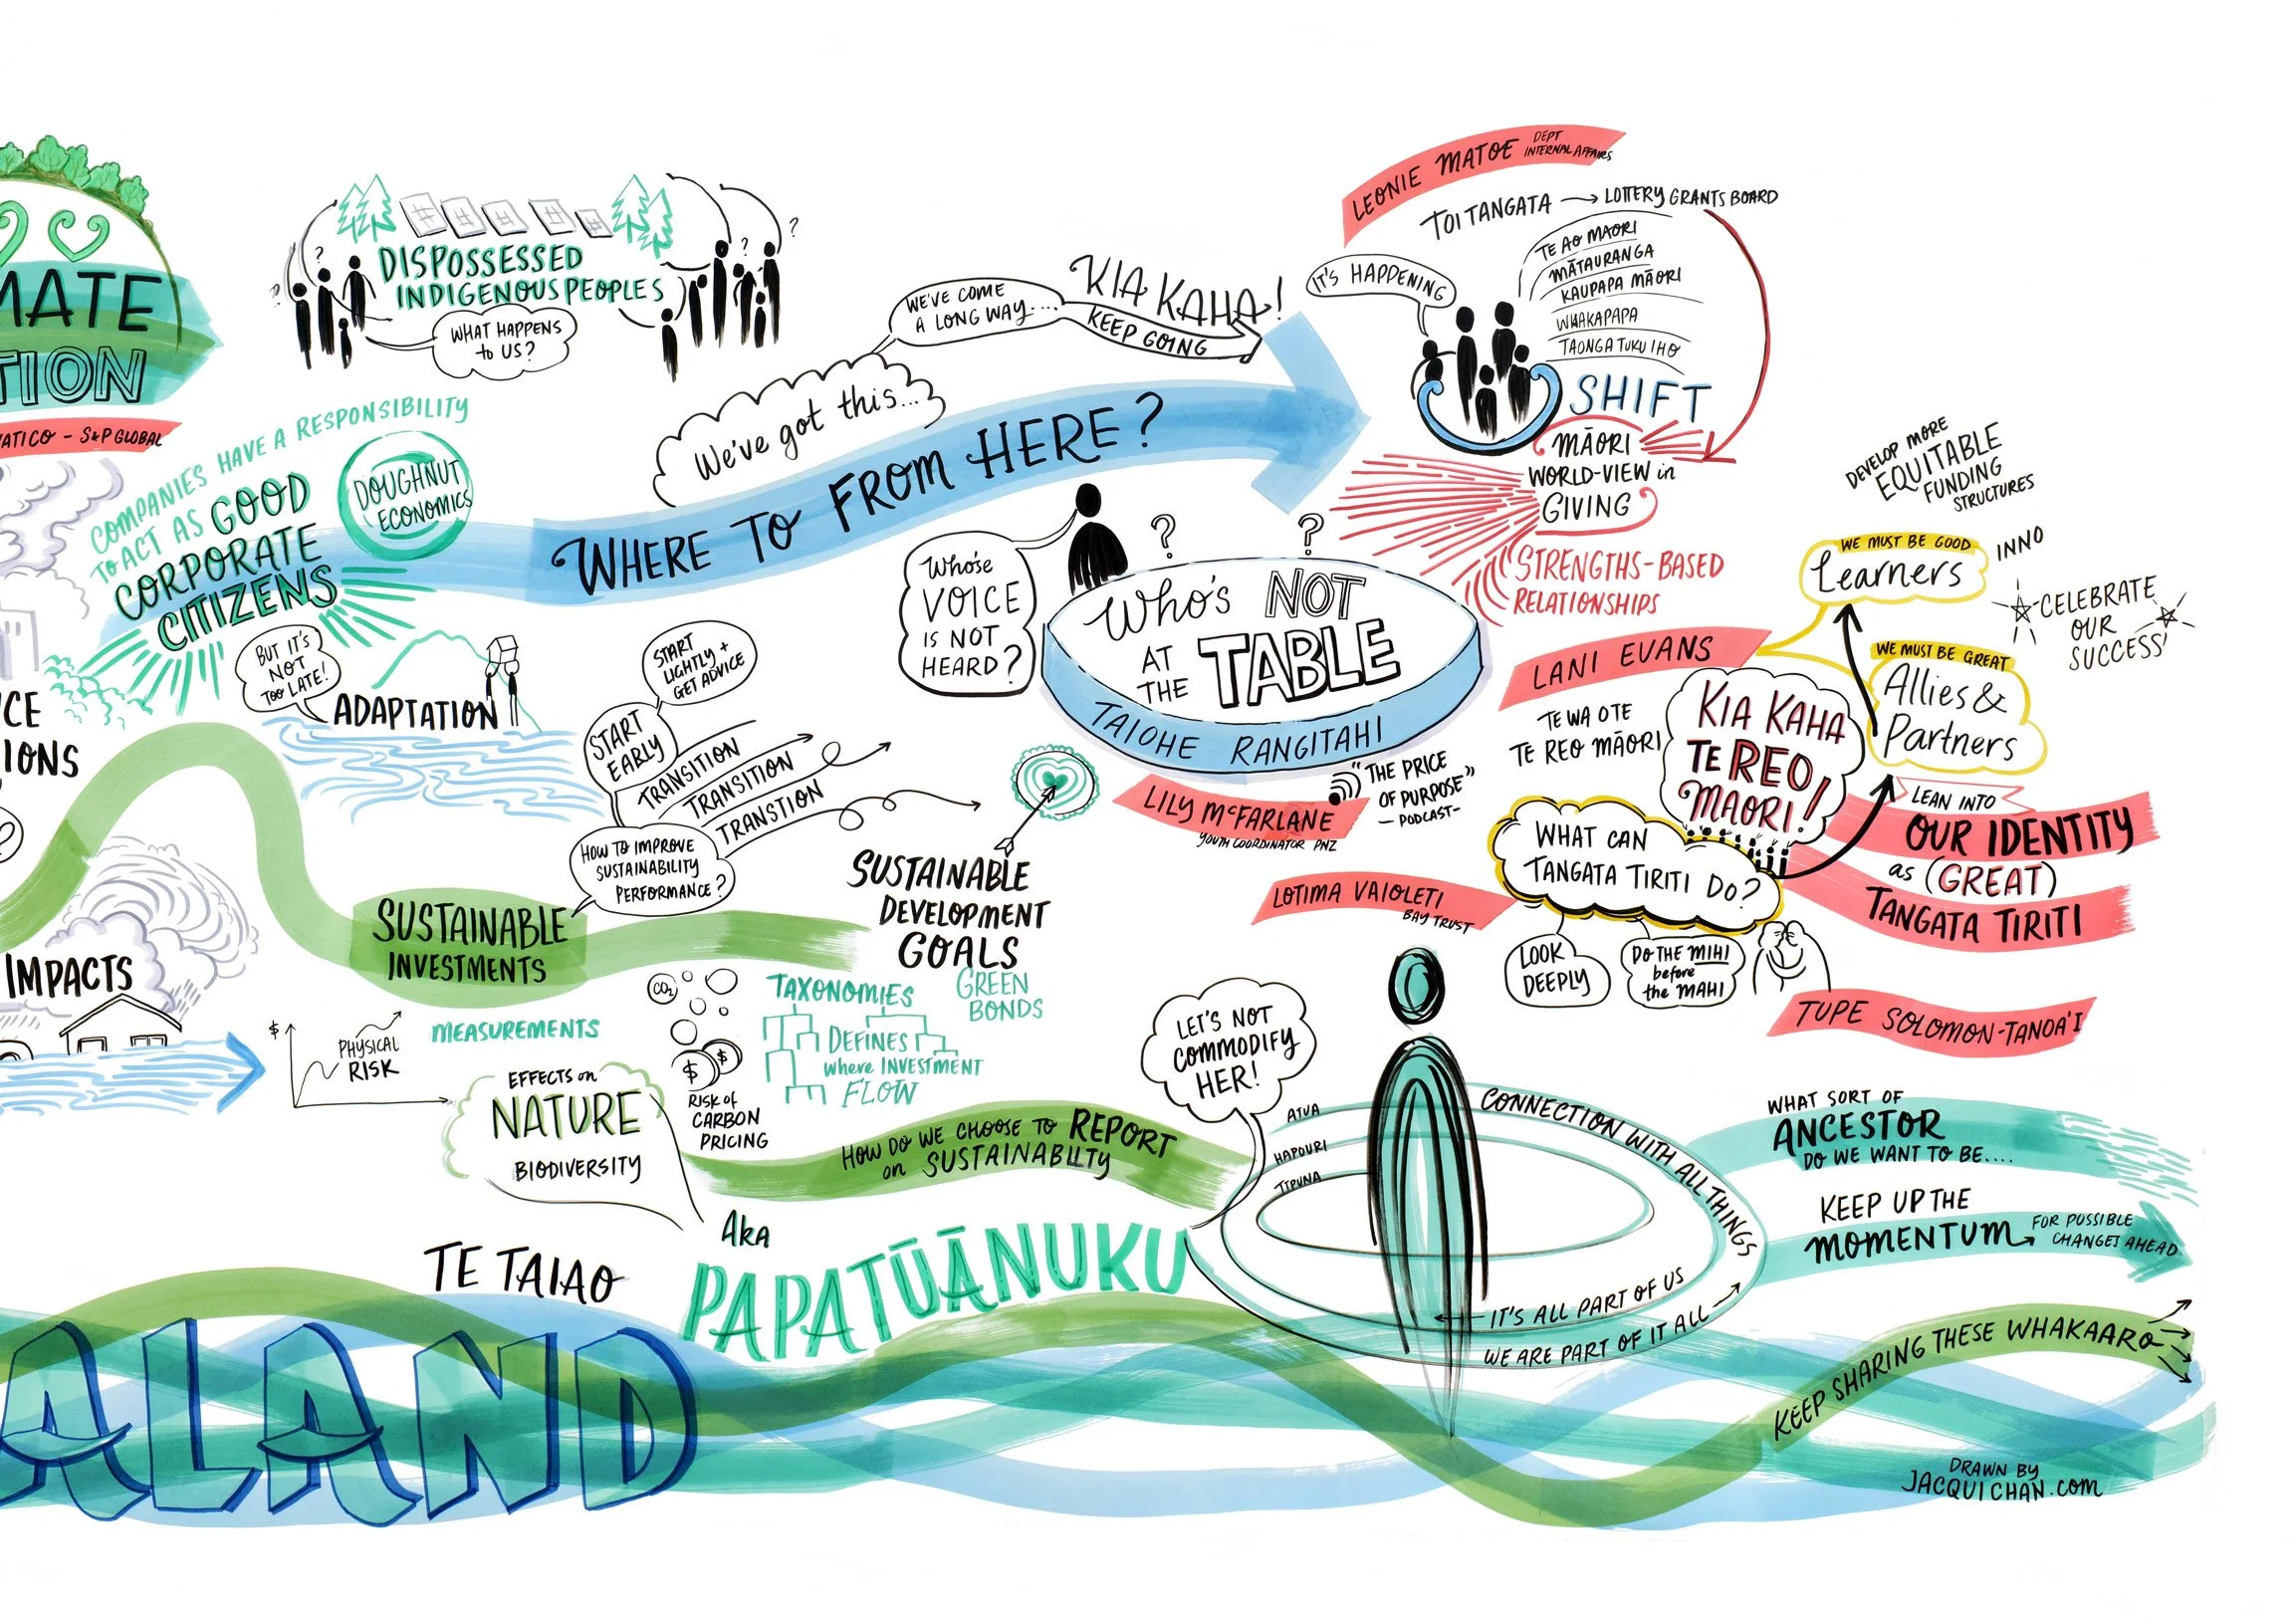 MATE
TION
VATICO - S&P GLOBAL
?
?
DISPOSSESSED
INDIGENOUS PEOPLES
WHAT HAPPENS
to US?
?
?
COMPANIES HAVE A RESPONSIBILITY
TO ACT AS GOOD
CORPORATE
CITIZENS
DOUGHNUT
ECONOMICS
BUT IT'S
NOT
TOO LATE!
ADAPTATION
CE
IONS
?
IMPACTS
WHERE TO FROM HERE?
We've got this...
WE'VE COME
A LONG WAY....
KIA KAHA!
KEEP GOING
LEONIE MATOE DEPT
INTERNAL AFFAIRS
TOI TANGATA → LOTTERY GRANTS BOARD
IT'S HAPPENING
TE AO MAORI
MĀTAURANGA
KAUPAPA MĀORI
WHAKAPAPA
TAONGA TUKU IHO
SHIFT
MĀORI
WORLD-VIEW in
GIVING
STRENGTHS-BASED
RELATIONSHIPS
Whose
VOICE
IS NOT
HEARD?
?
?
Who's NOT
AT
THE TABLE
TAIOHE RANGITAHI
LILY McFARLANE
YOUTH COORDINATOR PNZ
"THE PRICE
OF PURPOSE"
- PODCAST-
DEVELOP MORE
EQUITABLE
FUNDING
STRUCTURES
WE MUST BE GOOD
Learners
INNO
CELEBRATE
OUR
SUCCESS'
WE MUST BE GREAT
Allies &
Partners
LANI EVANS
TE WA O TE
TE REO MĀORI
KIA KAHA
TE REO
MAORI!
LEAN INTO
OUR IDENTITY
as (GREAT)
TANGATA TIRITI
WHAT CAN
TANGATA TIRITI DO?
LOOK
DEEPLY
DO THE MIHI
before
the MAHI
LOTIMA VAIOLETI
BAY TRUST
TUPE SOLOMON-TANOA'I
START
LIGHTLY +
GET ADVICE
START
EARLY
TRANSITION
TRANSITION
TRANSTION
HOW TO IMPROVE
SUSTAINABILITY
PERFORMANCE?
SUSTAINABLE
INVESTMENTS
SUSTAINABLE
DEVELOPMENT
GOALS
GREEN
BONDS
$
PHYSICAL
RISK
MEASUREMENTS
EFFECTS on
NATURE
BIODIVERSITY
CO2
$
$
RISK of
CARBON
PRICING
TAXONOMIES
DEFINES
where INVESTMENT
FLOW
HOW DO WE CHOOSE TO REPORT
on SUSTAINABILTY
LET'S NOT
COMMODIFY
HER!
ATUA
HAPOURI
TIPUNA
CONNECTION WITH ALL THINGS
IT'S ALL PART OF US
WE ARE PART OF IT ALL
WHAT SORT OF
ANCESTOR
DO WE WANT TO BE....
KEEP UP THE
MOMENTUM → FOR POSSIBLE
CHANGES AHEAD
TE TAIAO
AKA
PAPATŪĀNUKU
ALAND
KEEP SHARING THESE WHAKAARO
DRAWN BY
JACQUICHAN.com